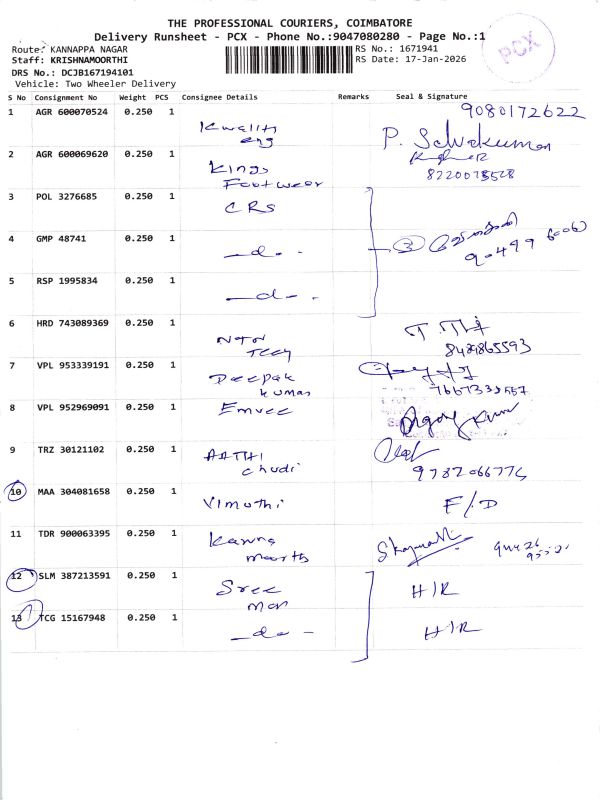 THE PROFESSIONAL COURIERS, COIMBATORE
Delivery Runsheet - PCX - Phone No.:9047080280 - Page No.:1
Route: KANNAPPA NAGAR
RS No.: 1671941
Staff: KRISHNAMOORTHI
RS Date: 17-Jan-2026
DRS No.: DCJB167194101
Vehicle: Two Wheeler Delivery
PCX
S No Consignment No Weight PCS Consignee Details Remarks Seal & Signature
1 AGR 600070524 0.250 1 9080172622
Kwality
eng
P. Selvakumar
2 AGR 600069620 0.250 1
Kings
Footwear
3 POL 3276685 0.250 1 CRS
4 GMP 48741 0.250 1 —do—
③
5 RSP 1995834 0.250 1 —do—
6 HRD 743089369 0.250 1
8429865593
7 VPL 953339191 0.250 1
Deepak
kumar
8 VPL 952969091 0.250 1 Emvee
9 TRZ 30121102 0.250 1
AATHI
chudi
9782066774
10 MAA 304081658 0.250 1 Vimuthi F/D
11 TDR 900063395 0.250 1
12 SLM 387213591 0.250 1 Sree H/R
man
13 TCG 15167948 0.250 1 —do— H/R